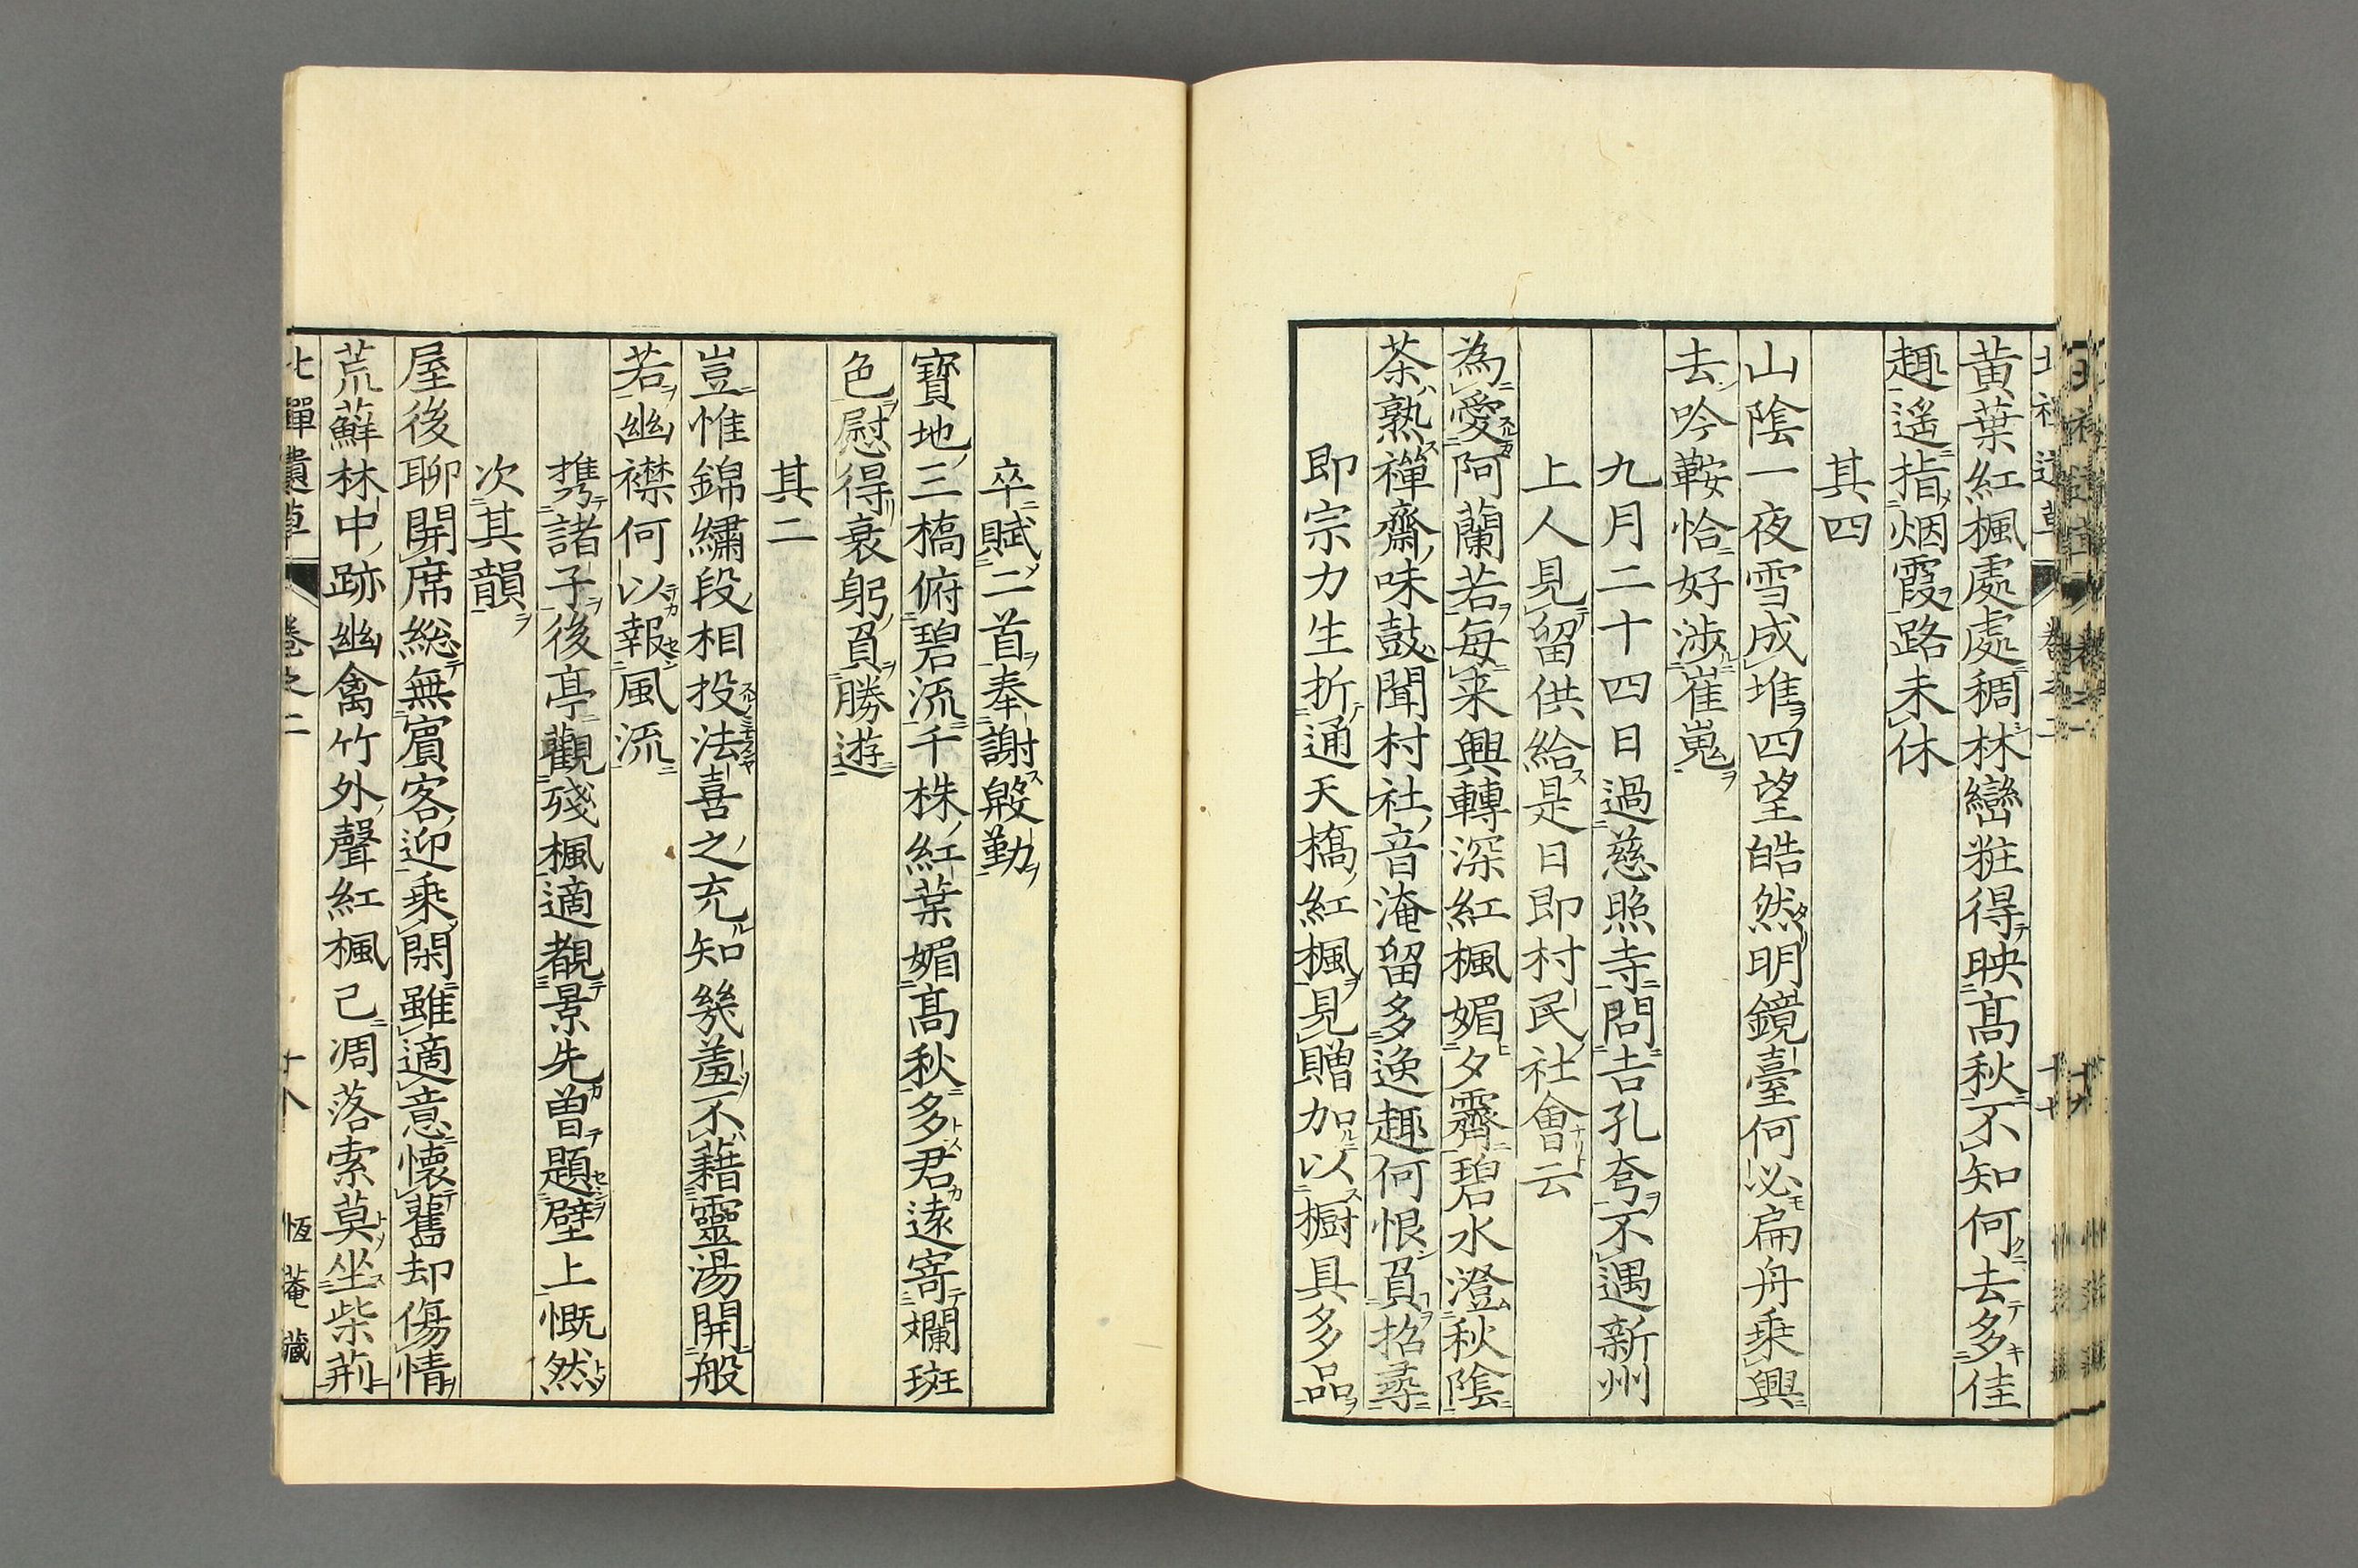 黄葉紅楓處處稠林巒粧得映髙秋不知何去多佳
趣遥指烟霞路未休
其四
山陰一夜雪成堆四望皓然明鏡臺何必扁舟乗興
去吟鞍恰好渉崔嵬
九月二十四日過慈照寺問吉孔夸不遇新州
上人見留供給是日即村民社會云
為愛阿蘭若每来興轉深紅楓媚夕霽碧水澄秋陰
茶熟禪齋味鼓聞村社音淹留多逸趣何恨負招尋
即宗力生折通天橋紅楓見贈加以櫥具多品
卒賦二首奉謝慇勤
寶地三橋俯碧流千株紅葉媚髙秋多君遠寄斕斑
色慰得衰躬負勝遊
其二
豈惟錦繡段相投法喜之充知幾羞不藉靈湯開般
若幽襟何以報風流
携諸子後亭觀殘楓適覩景先曽題壁上慨然
次其韻
屋後聊開席総無賓客迎乗閑雖適意懐舊却傷情
荒蘚林中跡幽禽竹外聲紅楓已凋落索莫坐柴荊
北禪遺草 卷之二 十八 恆菴藏